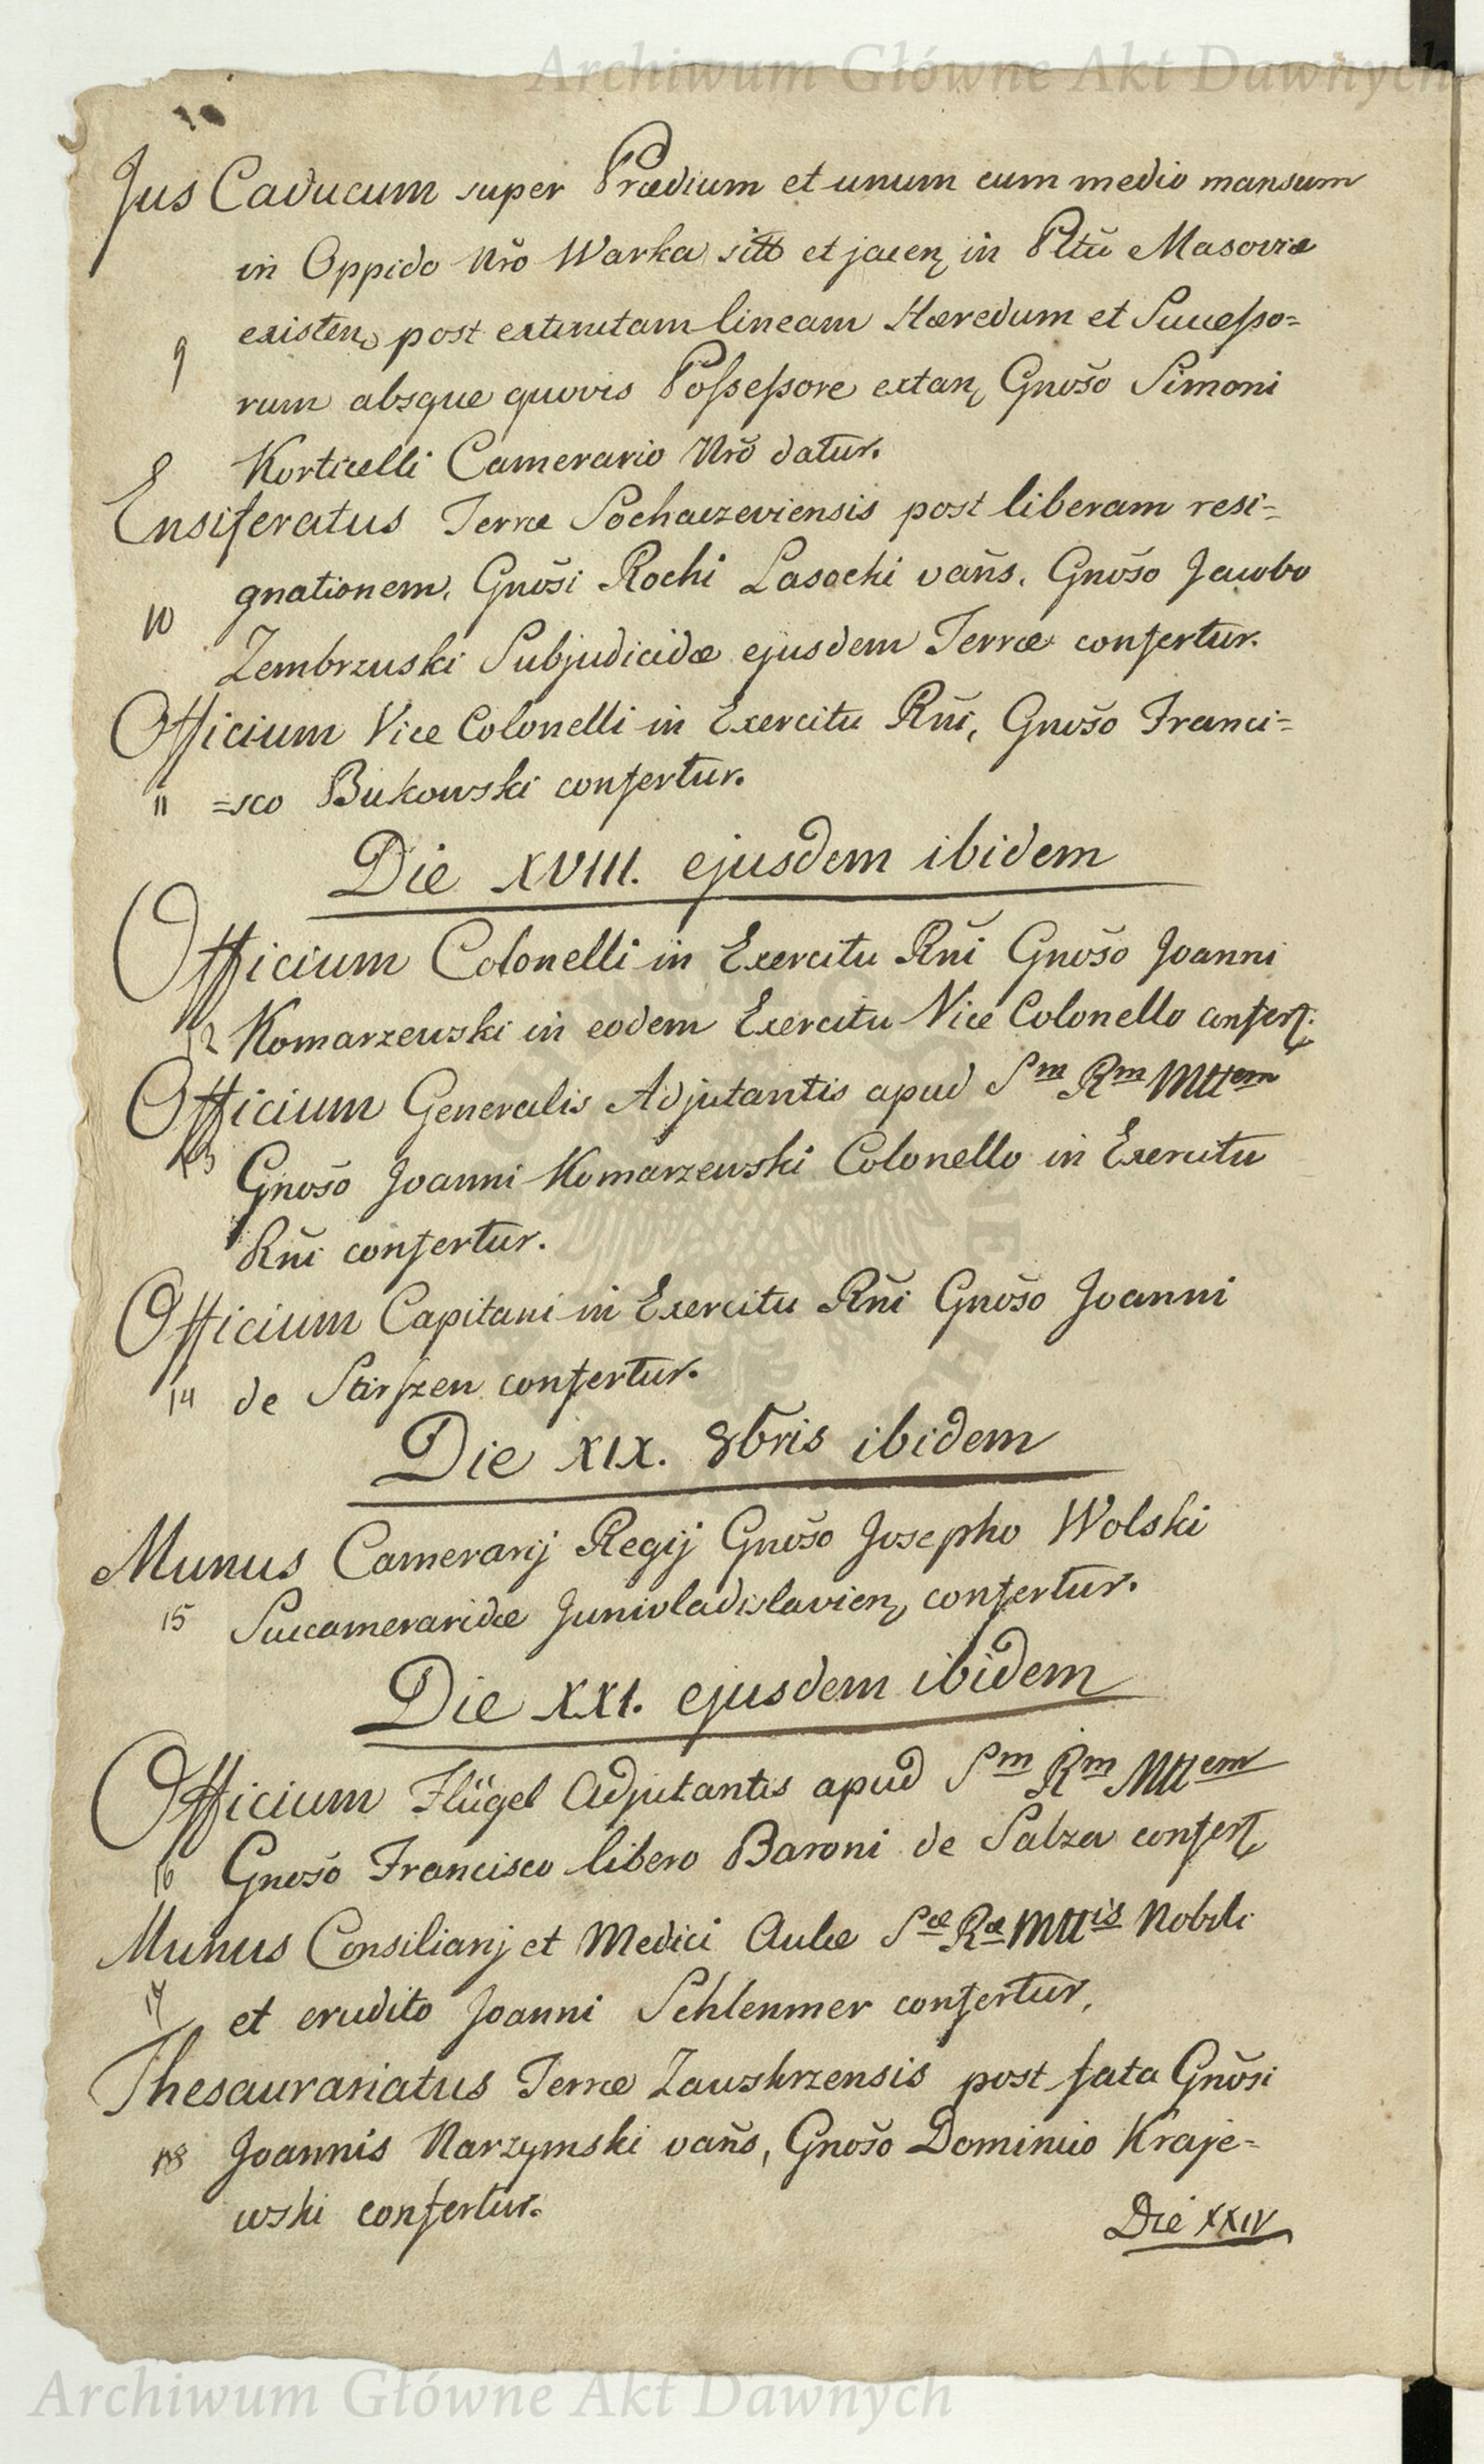 Archiwum Główne Akt Dawnych
Jus Caducum super Prædium et unum cum medio mansum
in Oppido Nrŏ Warka sitt et jacen in Pltŭ Masoviæ
existen, post extinctam lineam Hæredum et Successo=
9
rum absque quovis Possessore extan, Gnošo Simoni
Korticelli Camerario Nrŏ datur.
Ensiferatus Terræ Sochaczeviensis post liberam resi=
gnationem, Gnoši Rochi Lasocki vañs, Gnošo Jacobo
10
Zembrzuski Subjudicidæ ejusdem Terræ confertur.
Officium Vice Colonelli in Exercitu Rñi, Gnošo Franci=
11 =sco Bukowski confertur.
Die XVIII. ejusdem ibidem
Officium Colonelli in Exercitu Rñi Gnošo Joanni
12 Komarzewski in eodem Exercitu Vice Colonello confert.
Officium Generalis Adjutantis apud Sm Rm Mttem
13 Gnošo Joanni Komarzewski Colonello in Exercitu
Rñi confertur.
Officium Capitani in Exercitu Rñi Gnošo Joanni
14 de confertur.
Die XIX. 8bris ibidem
Munus Camerarij Regij Gnošo Josepho Wolski
15 Succameraridæ Junivladislavien, confertur.
Die XXI. ejusdem ibidem
Officium Flügel Adjutantis apud Sm Rm Mttem
16 Gnošo Francisco libero Baroni de Salza confert
Munus Consiliarij et Medici Aulæ Sæ Ræ Mttis Nobili
17 et erudito Joanni Schlenmer confertur,
Thesaurariatus Terræ Zawskrzensis post fata Gnoši
18 Joannis Narzymski vañs, Gnošo Dominico Kraje=
wski confertur.
Die XXIV
Archiwum Główne Akt Dawnych